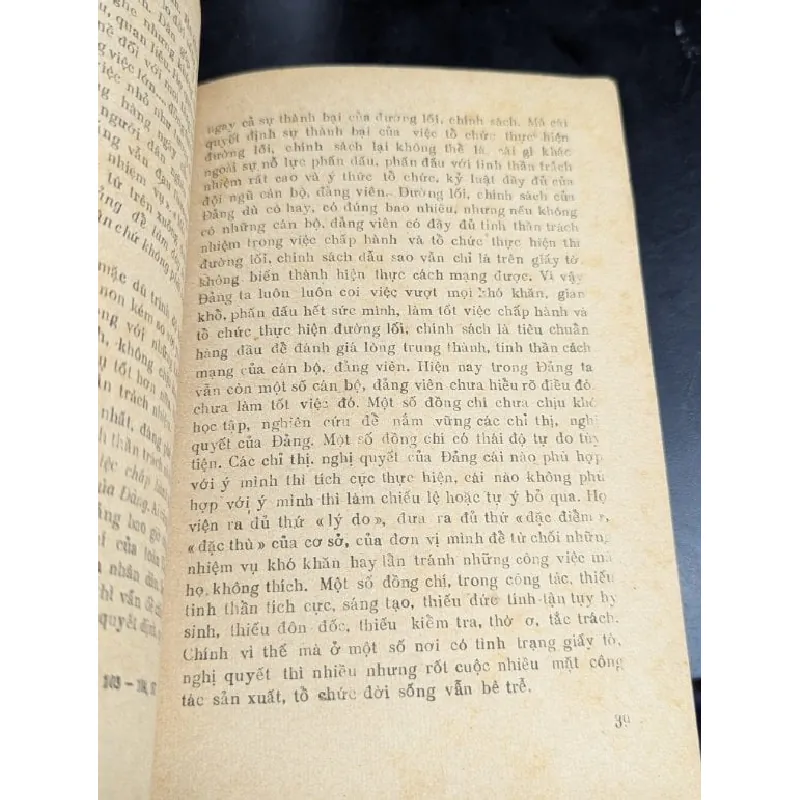 nghe những
quan liêu
đối với mọi
việc lớn...
việc nhỏ như
hàng ngày
người dân
vẫn đau
nhiệm vụ
từ trên xuống
để làm
chứ không phải
mặc dù trình độ
non kém so với
với những
không
tốt hơn nữa
thần trách nhiệm
nhất, đảng
thần trách
việc chấp hành
của Đảng.
bao giờ
của toàn
nhân dân
vẫn đề
quyết định
ngay cả sự thành bại của đường lối, chính sách. Mà cái
quyết định sự thành bại của việc tổ chức thực hiện
đường lối, chính sách lại không thể là cái gì khác
ngoài sự nỗ lực phấn đấu, phấn đấu với tinh thần trách
nhiệm rất cao và ý thức tổ chức, kỷ luật đầy đủ của
đội ngũ cán bộ, đảng viên. Đường lối, chính sách của
Đảng dù có hay, có đúng bao nhiêu, nhưng nếu không
có những cán bộ, đảng viên có đầy đủ tinh thần trách
nhiệm trong việc chấp hành và tổ chức thực hiện thì
đường lối, chính sách dẫu sao vẫn chỉ là trên giấy tờ
không biến thành hiện thực cách mạng được. Vì vậy
Đảng ta luôn luôn coi việc vượt mọi khó khăn, gian
khổ, phấn đấu hết sức mình, làm tốt việc chấp hành và
tổ chức thực hiện đường lối, chính sách là tiêu chuẩn
hàng đầu để đánh giá lòng trung thành, tinh thần cách
mạng của cán bộ, đảng viên. Hiện nay trong Đảng ta
vẫn còn một số cán bộ, đảng viên chưa hiểu rõ điều đó
chưa làm tốt việc đó. Một số đồng chí chưa chịu khó
học tập, nghiên cứu để nắm vững các chỉ thị, nghị
quyết của Đảng. Một số đồng chí có thái độ tự do tùy
tiện. Các chỉ thị, nghị quyết của Đảng cái nào phù hợp
với ý mình thì tích cực thực hiện, cái nào không phù
hợp với ý mình thì làm chiếu lệ hoặc tự ý bỏ qua. Họ
viện ra đủ thứ «lý do», đưa ra đủ thứ «đặc điểm»,
«đặc thù» của cơ sở, của đơn vị mình để từ chối những
nhiệm vụ khó khăn hay lẩn tránh những công việc mà
họ không thích. Một số đồng chí, trong công tác, thiếu
tinh thần tích cực, sáng tạo, thiếu đức tính tận tụy hy
sinh, thiếu đôn đốc, thiếu kiểm tra, thờ ơ, tắc trách.
Chính vì thế mà ở một số nơi có tình trạng giấy tờ,
nghị quyết thì nhiều nhưng rốt cuộc nhiều mặt công
tác sản xuất, tổ chức đời sống vẫn bê trễ.
39